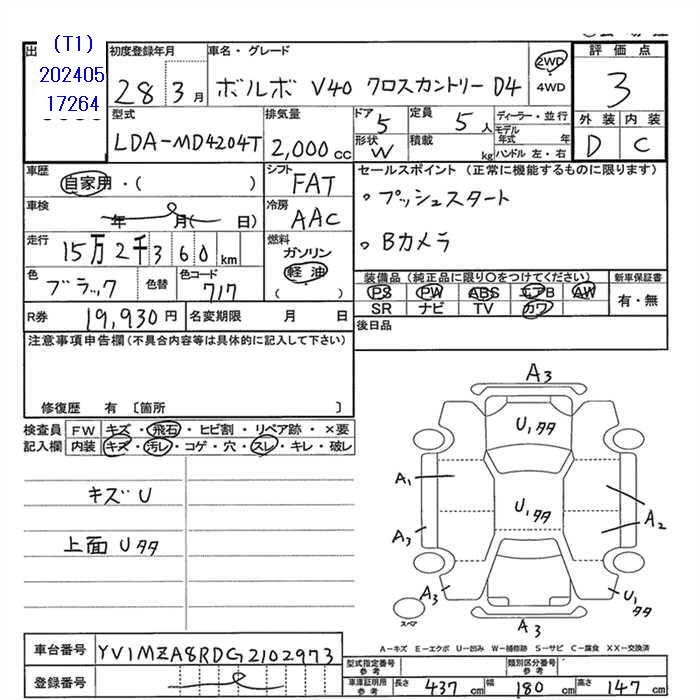 出 (T1)
202405
17264
初度登録年月
28 3月
車名・グレード
ボルボ V40 クロスカントリー D4
2WD
4WD
評価点
3
外装 内装
D C
型式
LDA-MD4204T
排気量
2,000cc
ドア
5
形状
W
定員
5人
積載
kg
ディーラー・並行
モデル年式 年
ハンドル 左・右
車歴
自家用・( )
シフト
FAT
車検
年 月( 日)
冷房
AAC
走行
15万2千360km
燃料
ガソリン
軽油
( )
色
ブラック
色替
色コード
717
R券 19,930円
名変期限 月 日
セールスポイント (正常に機能するものに限ります)
。プッシュスタート
。Bカメラ
装備品(純正品に限り○をつけてください)
PS PW ABS エアB AW
SR ナビ TV カワ
新車保証書
有・無
後日品
注意事項申告欄(不具合内容等は具体的に記入して下さい)
修復歴 有 〔箇所 〕
検査員
記入欄
FW キズ・飛石・ヒビ割・リペア跡・×要
内装 キズ・汚レ・コゲ・穴・スレ・キレ・破レ
キズ U
上面 Uタタ
A3
U1タタ
A1
U1タタ
A3
A2
A3
U1タタ
スペア
A3
A-キズ E-エクボ U-凹み W-補修跡 S-サビ C-腐食 XX-交換済
車台番号 YV1MZA8RDG2102973
登録番号
型式指定番号
参考
類別区分番号
参考
車庫証明用
参考
長さ 437cm 幅 180cm 高さ 147cm